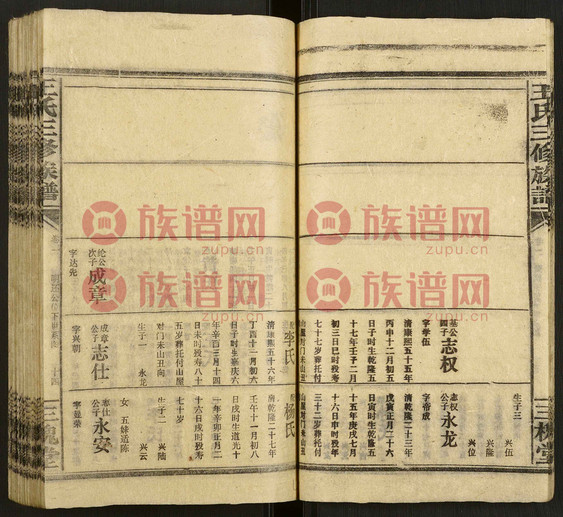 王氏三修族譜
三槐堂
生子三
兴伍
兴隆
兴位
基公
四子
志权
字学伍
清康熙五十五年
丙申十二月初五
日子时生乾隆五
十七年壬子二月
初三日巳时殁年
七十七岁葬托付
山屋对门未山丑
志权
公子
永龙
字帝成
清乾隆二十三年
戊寅正月二十六
日寅时生乾隆五
十五年庚戌七月
十六日申时殁年
三十二岁葬托付
山屋对门未山丑
李氏
清康熙五十六年
丁酉十一月初六
日子时生嘉庆六
年辛酉三月十四
日未时殁寿八十
五岁葬托付山屋
对门未山丑向
生子一
永龙
杨氏
清乾隆二十七年
壬午十一月初八
日戌时生道光十
一年辛卯正月二
十六日戌时殁寿
七十岁
生子二
兴陆
兴云
女
五妹适陈
纶公
次子
成章
字达先
成章
公子
志仕
字兴朝
志仕
公子
永安
字显荣
王氏三修族譜
三槐堂
族谱网
zupu.cn
族谱网
zupu.cn